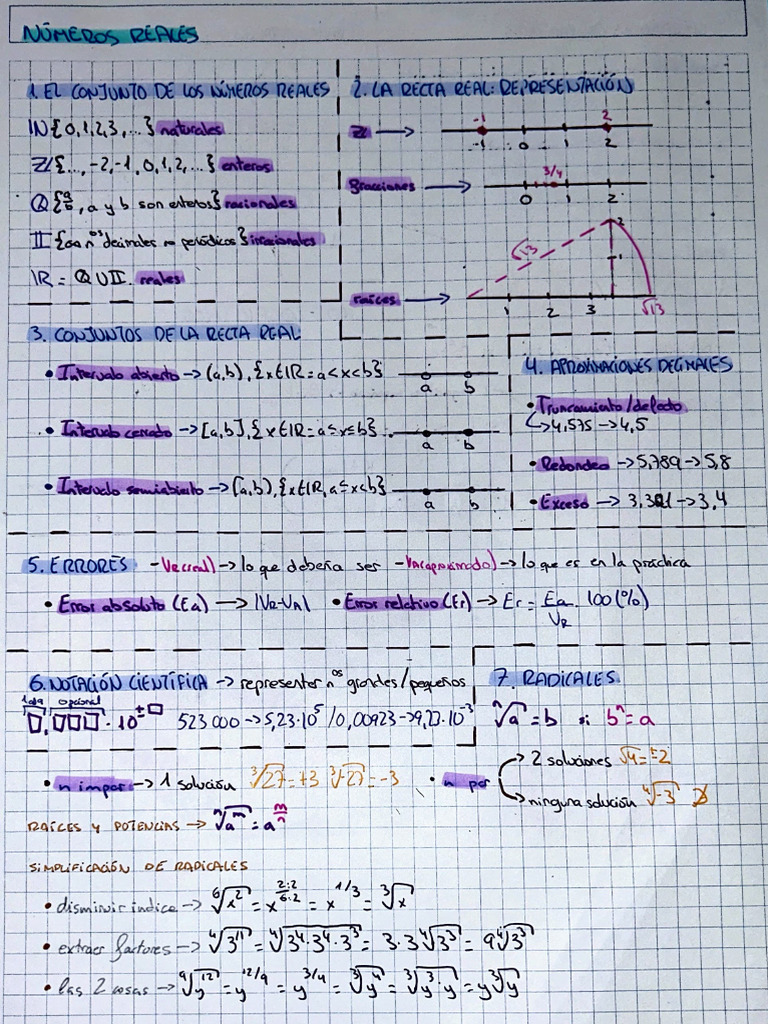 NÚMEROS REALES
1. EL CONJUNTO DE LOS NÚMEROS REALES
ℕ {0,1,2,3,...} naturales
ℤ {..., -2,-1, 0,1,2,...} enteros
ℚ {a/b, a y b son enteros} racionales
𝕀 {∞ nºs decimales no periódicos} irracionales
ℝ = ℚ ∪ 𝕀 reales
2. LA RECTA REAL: REPRESENTACIÓN
ℤ →
-1 2
-1 0 1 2
fracciones →
3/4
0 1 2
raíces →
√13
2
1
1 2 3 √13
3. CONJUNTOS DE LA RECTA REAL
• Intervalo abierto → (a,b), {x∈ℝ = a<x<b}
a b
• Intervalo cerrado → [a,b], {x∈ℝ = a≤x≤b}
a b
• Intervalo semiabierto → [a,b), {x∈ℝ, a≤x<b}
a b
4. APROXIMACIONES DECIMALES
• Truncamiento/defecto
↳ 4,575 → 4,5
• Redondeo → 5,789 → 5,8
• Exceso → 3,321 → 3,4
5. ERRORES - Vr(real) → lo que debería ser - Va(aproximado) → lo que es en la práctica
• Error absoluto (Ea) → |VR-VA| • Error relativo (Er) → Er = Ea/VR · 100 (%)
6. NOTACIÓN CIENTÍFICA → representar nºs grandes/pequeños
opcional
□,□□□ · 10^±□ 523 000 → 5,23·10^5 / 0,00923 → 9,23·10^-3
7. RADICALES
ⁿ√a = b si bⁿ = a
• n impar → 1 solución ³√27 = +3 ³√-27 = -3
• n par
→ 2 soluciones √4 = ±2
→ ninguna solución ⁴√-3 ∄
RAÍCES Y POTENCIAS → ⁿ√a^m = a^(m/n)
SIMPLIFICACIÓN DE RADICALES
• disminuir índice → ⁶√x² = x^(2:2/6:2) = x^1/3 = ³√x
• extraer factores → ⁴√3^11 = ⁴√3⁴·3⁴·3³ = 3·3 ⁴√3³ = 9 ⁴√3³
• las 2 cosas → ⁹√y^12 = y^12/9 = y^3/4 = ³√y⁴ = ³√y³·y = y ³√y